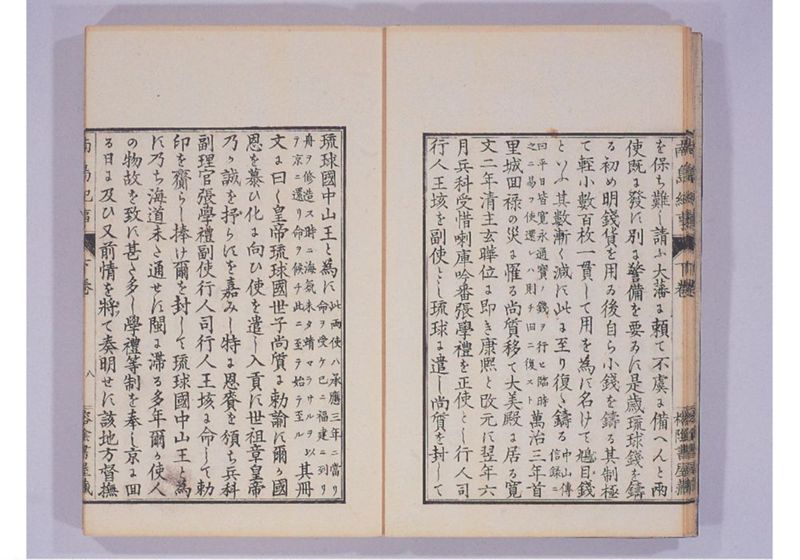 南島紀事
下巻
を保ち難し請ふ大藩に頼て不虞に備へんと兩
使既に發に別に警備を要るに是歳琉球錢を鑄
る初め明錢貨を用る後自ら小錢を鑄る其制極
て輕小數百枚一貫して用を為に名けて鳩目錢
といふ其數漸く減に此に至り復た鑄る中山傳信録ニ
曰平日皆寛永通寶ノ錢ヲ行ヒ臨時之ニ易フ使還レハ則チ旧ニ復スト萬治三年首
里城回禄の災に罹る尚質移て大美殿に居る寛
文二年清主玄曄位に即き康熙と改元に翌年六
月兵科受惜喇庫哈番張學禮を正使とし行人司
行人王垓を副使とし琉球に遣し尚質を封して
琉球國中山王と為に此両使ハ承應三年ニ當リ命ヲ受ケ已ニ福建ニ到リ
舟ヲ修造ス時ニ海氣未タ靖マラサルヲ以ヲ京ニ還リ命ヲ候チ此ニ至テ始テ至ル其冊
文に曰く皇帝琉球國世子尚質に勅諭に爾か國
恩を慕ひ化に向ひ使を遣し入貢に世祖章皇帝
乃か誠を抒らにを嘉みし特に恩賚を頒ち兵科
副理官張學禮副使行人司行人王垓に命して勅
印を齎らし捧け爾を封して琉球國中山王と為
に乃ち海道未た通せに閩に滞る多年爾か使人
の物故を致に甚た多し學禮等制を奉し京に回
る日に及ひ又前情を將て奏明せに該地方督撫
南島紀事
下巻
八